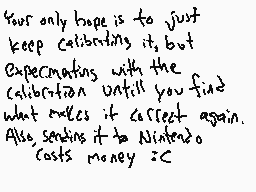 Your only hope is to just
keep calibrting it, but
expermating with the
calibrtion untill you find
what makes it correct again.
Also, sending it to Nintendo
costs money :C